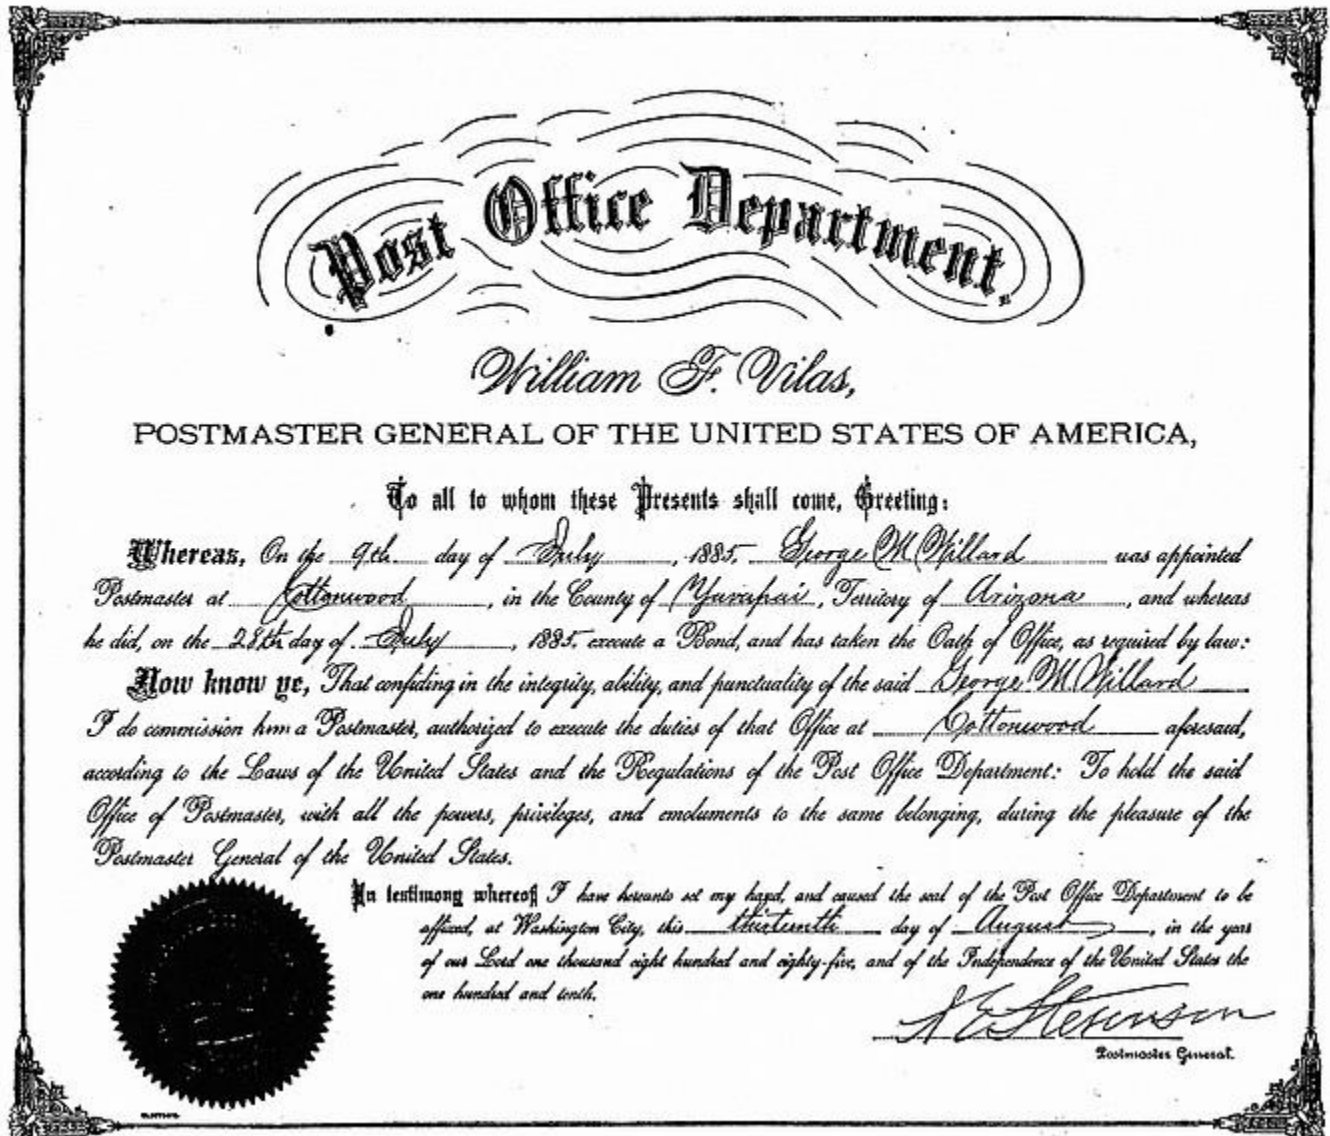 Post Office Department.
William F. Vilas,
POSTMASTER GENERAL OF THE UNITED STATES OF AMERICA,
To all to whom these Presents shall come, Greeting:
Whereas, On the 9th day of July, 1885, George M Willard was appointed
Postmaster at Cottonwood, in the County of Yavapai, Territory of Arizona, and whereas
he did, on the 28th day of July, 1885, execute a Bond, and has taken the Oath of Office, as required by law:
Now know ye, That confiding in the integrity, ability, and punctuality of the said George M Willard
I do commission him a Postmaster, authorized to execute the duties of that Office at Cottonwood aforesaid,
according to the Laws of the United States and the Regulations of the Post Office Department: To hold the said
Office of Postmaster, with all the powers, privileges, and emoluments to the same belonging, during the pleasure of the
Postmaster General of the United States.
In testimony whereof I have hereunto set my hand, and caused the seal of the Post Office Department to be
affixed, at Washington City, this thirteenth day of August, in the year
of our Lord one thousand eight hundred and eighty-five, and of the Independence of the United States the
one hundred and tenth.
A E Stevenson
Postmaster General.